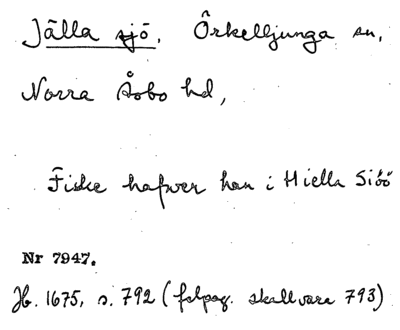 Jälla sjö. Örkelljunga sn,
Norra Åsbo hd,
Fiske hafwer han i Hiella Siöö
Nr 7947.
Jb. 1675, s. 792 (felpag. skall vara 793)